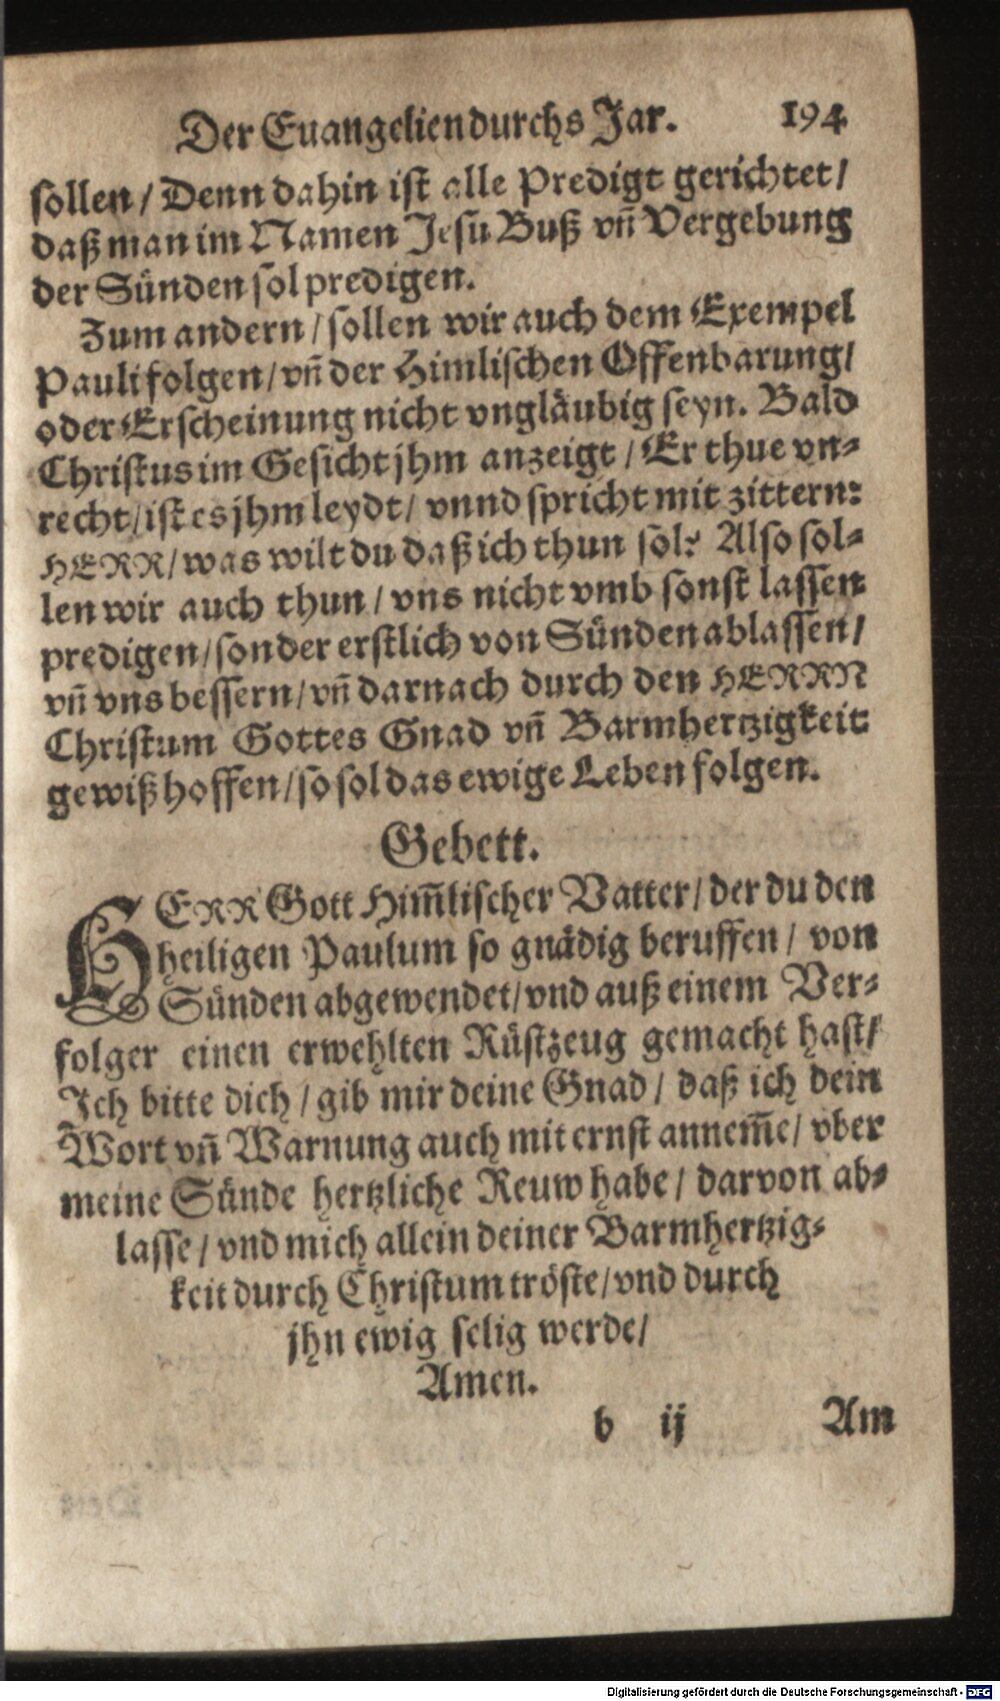 Der Euangelien durchs Jar. 194
sollen / Denn dahin ist alle Predigt gerichtet /
daß man im Namen Jesu Buß vn̄ Vergebung
der Sünden sol predigen.
Zum andern / sollen wir auch dem Exempel
Pauli folgen / vn̄ der Himlischen Offenbarung /
oder Erscheinung nicht vngläubig seyn. Bald
Christus im Gesicht jhm anzeigt / Er thue vn-
recht / ist es jhm leydt / vnnd spricht mit zittern:
HERR / was wilt du daß ich thun sol? Also sol-
len wir auch thun / vns nicht vmb sonst lassen
predigen / sonder erstlich von Sünden ablassen /
vn̄ vns bessern / vn̄ darnach durch den HERRN
Christum Gottes Gnad vn̄ Barmhertzigkeit
gewiß hoffen / so sol das ewige Leben folgen.
Gebett.
HERR Gott Him̄lischer Vatter / der du den
heiligen Paulum so gnädig beruffen / von
Sünden abgewendet / vnd auß einem Ver-
folger einen erwehlten Rüstzeug gemacht hast /
Ich bitte dich / gib mir deine Gnad / daß ich dein
Wort vn̄ Warnung auch mit ernst annem̄e / vber
meine Sünde hertzliche Reuw habe / darvon ab-
lasse / vnd mich allein deiner Barmhertzig-
keit durch Christum tröste / vnd durch
jhn ewig selig werde /
Amen.
b ij Am
Digitalisierung gefördert durch die Deutsche Forschungsgemeinschaft - DFG